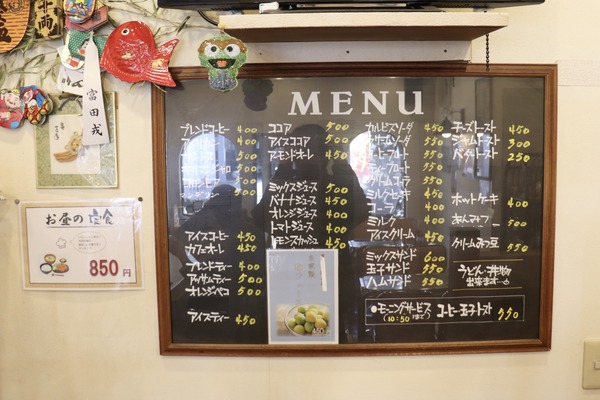 富田戎
お昼の定食
850円
MENU
ブレンドコーヒー 400
アイスコーヒー 450
カフェオーレ 450
ブレンドティー 400
アッサムティー 500
オレンジペコ 500
アイスティー 450
ココア 500
アイスココア 500
アーモンドオーレ 450
ミックスジュース 500
バナナジュース 450
オレンジジュース 400
トマトジュース 400
レモンスカッシュ 450
カルピスソーダ 450
クリームソーダ 550
コーヒーフロート 550
ミルクセーキ 450
コーラ 400
ミルク 400
アイスクリーム 450
ミックスサンド 600
玉子サンド 550
ハムサンド 550
チーズトースト 450
ジャムトースト 300
バタートースト 250
ホットケーキ 400
あんみつ 500
クリームみつ豆 550
うどん・丼物
出来ます
モーニングサービス コーヒー・玉子・トースト 550
(10:50まで)